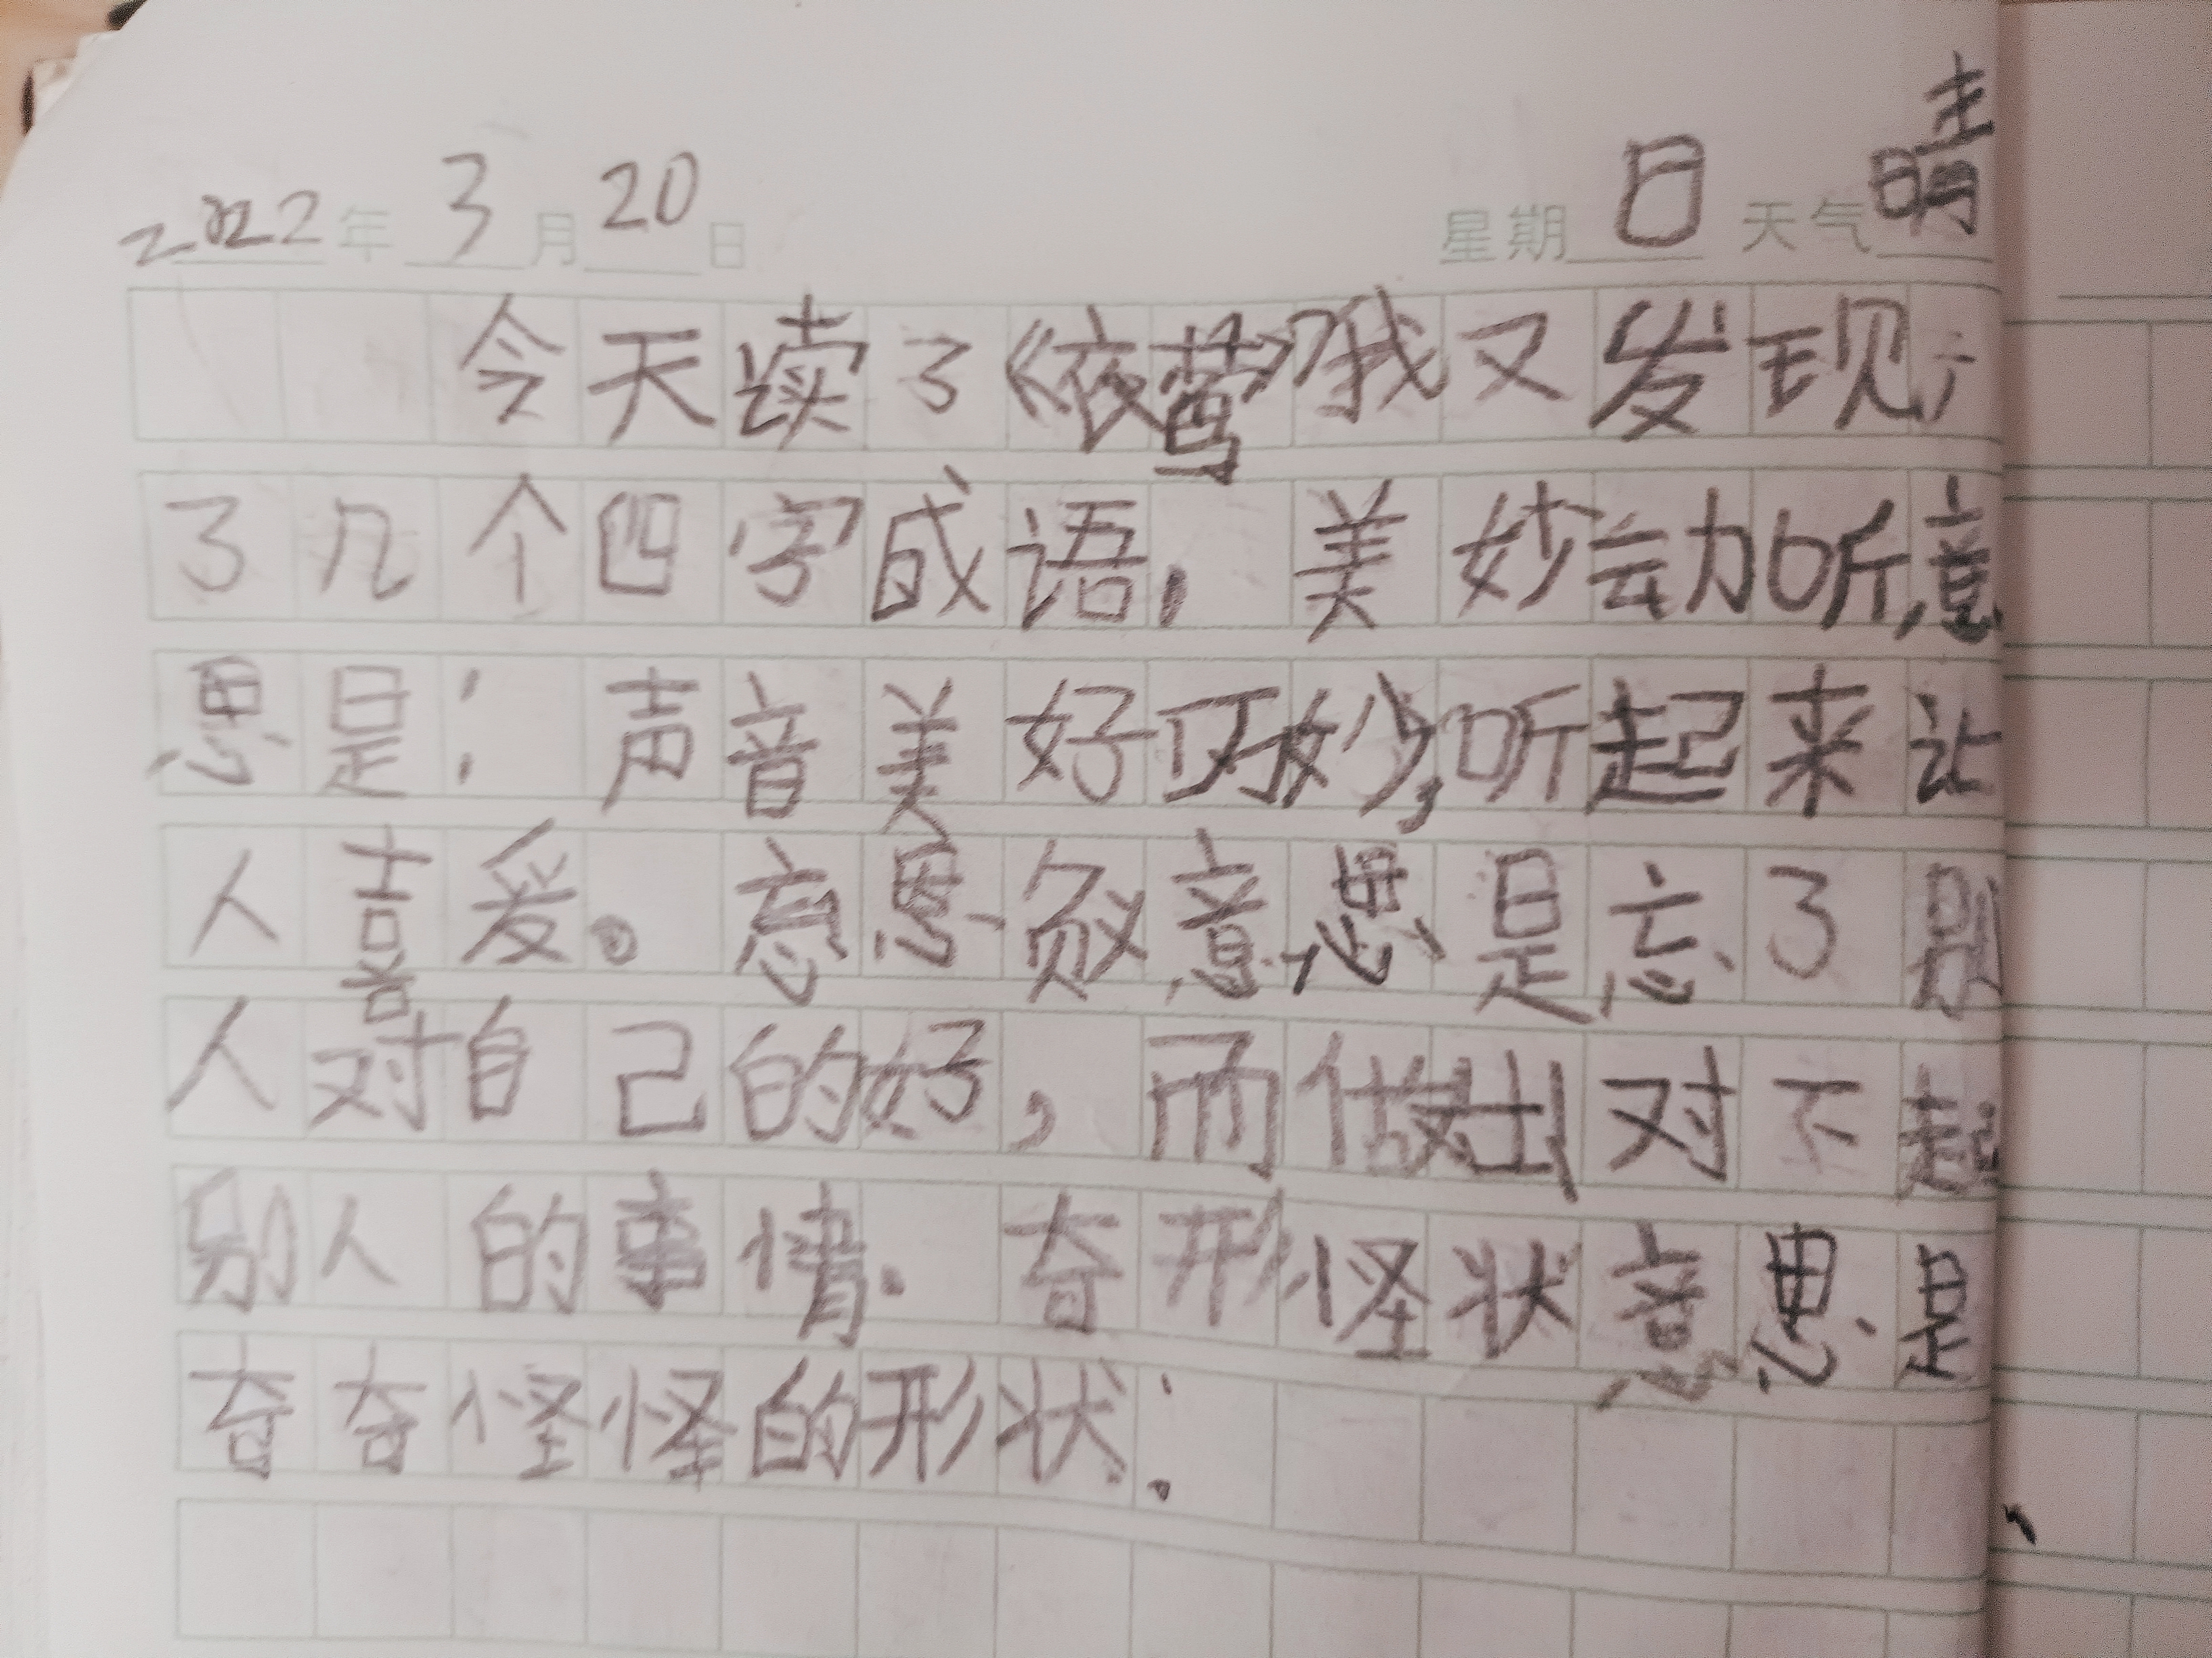 2022年3月20日 星期日 天气晴
今天读了《夜莺》我又发现
了几个四字成语，美妙动听，意
思是：声音美好巧妙，听起来让
人喜爱。忘恩负意思是忘了别
人对自己的好，而做出对不起
别人的事情．奇形怪状意思是
奇奇怪怪的形状：